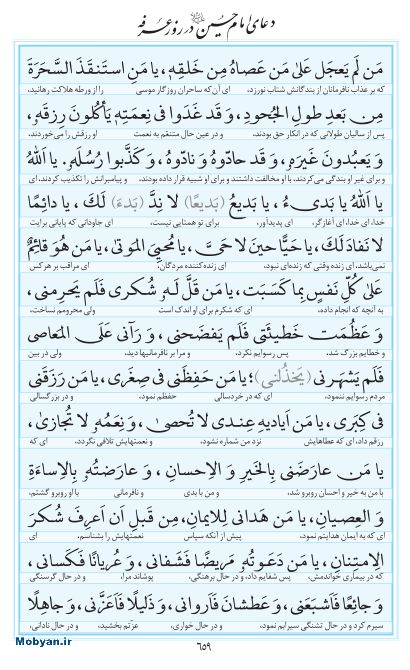 دعای امام حسین در روز عرفه
مَن لَم یَعجَل عَلیٰ مَن عَصاهُ مِن خَلقِهِ، یا مَنِ استَنقَذَ السَّحَرَةَ
که بر عذاب نافرمانان از بندگانش شتاب نورزد، ای آن که ساحران روزگار موسی را از ورطه هلاکت رهانید،
مِن بَعدِ طولِ الجُحودِ، وَ قَد غَدَوا فی نِعمَتِهِ یَأکُلونَ رِزقَهُ،
پس از سالیان طولانی که در انکار حق بودند، و در عین حال متنعّم به نعمت او رزقش را می‌خوردند،
وَ یَعبُدونَ غَیرَهُ، وَ قَد حادّوهُ وَ نادّوهُ، وَ کَذَّبوا رُسُلَهُ. یا اَللهُ
و برای غیر او بندگی می‌کردند، با او مخالفت داشتند و برای او شبیه قرار داده بودند، و پیامبرانش را تکذیب کردند، ای
یا اَللهُ یا بَدیءُ، یا بَدیعُ (بَدیعًا) لا نِدَّ (بَدءَ) لَکَ، یا دائِمًا
خدا، ای خدا، ای آغازگر، ای پدیدآور، برای تو همتایی نیست، ای جاودانی که پایانی برایت
لا نَفادَ لَکَ، یا حَیًّا حینَ لا حَیَّ، یا مُحیِیَ المَوتیٰ، یا مَن هُوَ قائِمٌ
نمی‌باشد، ای زنده وقتی که زنده‌ای نبود، ای زنده کننده مردگان، ای مراقب بر هر کس
عَلیٰ کُلِّ نَفسٍ بِما کَسَبَت، یا مَن قَلَّ لَهُ شُکری فَلَم یَحرِمنی،
به آنچه که انجام داده، ای که شکرم برای او اندک است ولی محرومم نساخت،
وَ عَظُمَت خَطیئَتی فَلَم یَفضَحنی، وَ رَآنی عَلَی المَعاصی
و خطایم بزرگ شد، پس رسوایم نکرد، و مرا بر نافرمانیها دید، ولی در بین
فَلَم یَشهَرنی (یَخذُلنی)؛ یا مَن حَفِظَنی فی صِغَری، یا مَن رَزَقَنی
مردم رسوایم ننمود، ای که در خردسالی حفظم نمود، و در بزرگسالی
فی کِبَری، یا مَن اَیادیهِ عِندی لا تُحصیٰ، وَ نِعَمُهُ لا تُجازیٰ،
رزقم داد، ای که عطاهایش نزد من شماره نشود، و نعمتهایش تلافی نگردد، ای که
یا مَن عارَضَنی بِالخَیرِ وَ الاِحسانِ، وَ عارَضتُهُ بِالاِساءَةِ
با من به خیر و احسان روبرو شد، و من با بدی و نافرمانی با او روبرو گشتم،
وَ العِصیانِ، یا مَن هَدانی لِلایمانِ، مِن قَبلِ اَن اَعرِفَ شُکرَ
ای که به ایمان هدایتم نمود، پیش از آنکه سپاس نعمتهایش را بشناسم، ای
الاِمتِنانِ، یا مَن دَعَوتُهُ مَریضًا فَشَفانی، وَ عُریانًا فَکَسانی،
که در بیماری خواندمش، پس شفایم داد، و در حال برهنگی، پوشاند مرا، و در حال گرسنگی
وَ جائِعًا فَاَشبَعَنی، وَ عَطشانَ فَاَروانی، وَ ذَلیلًا فَاَعَزَّنی، وَ جاهِلًا
سیرم کرد و در حال تشنگی سیرابم نمود، و در حال خواری، عزّتم بخشید، و در حال نادانی
۶۵۹
Mobyan.ir